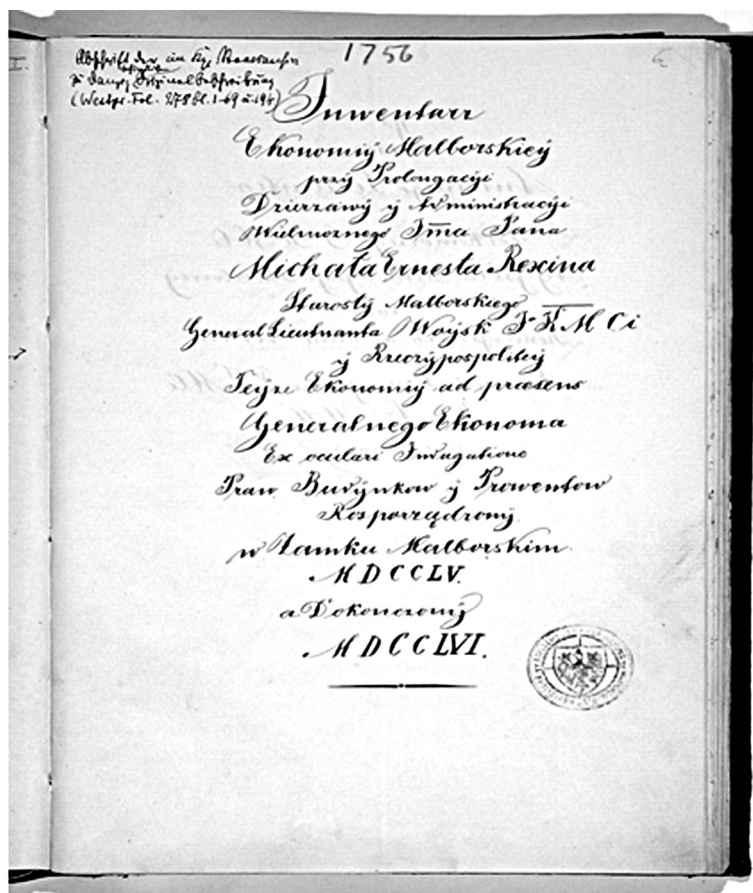 1756
Abschrift der im Kgl. Staatsarchiv
zu Danzig Originalbeschreibung
(Westpr. Fol. 278 Bl. 1-69 u.
I.
Inwentarz
Ekonomiÿ Malborskieÿ
przÿ Prolongacÿi
Dzierzawÿ ÿ Administracÿi
Wielmoznego Jm̅a Pana
Michała Ernesta Rexina
Starostÿ Malborskiego
General Lieutnanta Woÿsk J K M Ci
ÿ Rzeczÿpospoliteÿ
Teÿze Ekonomiÿ ad præsens
Generalnego Ekonoma
Ex oculari Indagatione
Praw Budÿnkow ÿ Prowentow
Rosporządzonÿ
w Zamku Malborskim.
MDCCLV.
a Dokonczonÿ
MDCCLVI.